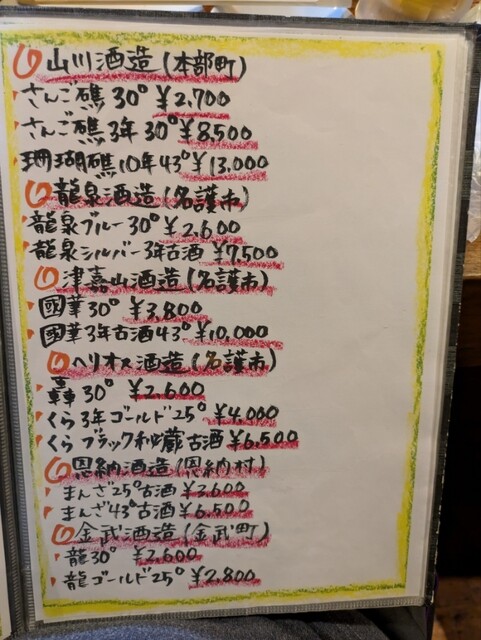 山川酒造(本部町)
さんご礁 30° ¥2,700
さんご礁 3年 30° ¥8,500
珊瑚礁 10年 43° ¥13,000
龍泉酒造(名護市)
龍泉ブルー 30° ¥2,600
龍泉シルバー 3年古酒 ¥7,500
津嘉山酒造(名護市)
國華 30° ¥3,800
國華 3年古酒 43° ¥10,000
ヘリオス酒造(名護市)
轟 30° ¥2,600
くら 3年ゴールド 25° ¥4,000
くら ブラック 秘蔵古酒 ¥6,500
恩納酒造(恩納村)
まんざ 25° 古酒 ¥3,600
まんざ 43° 古酒 ¥6,500
金武酒造(金武町)
龍 30° ¥2,600
龍ゴールド 25° ¥2,800